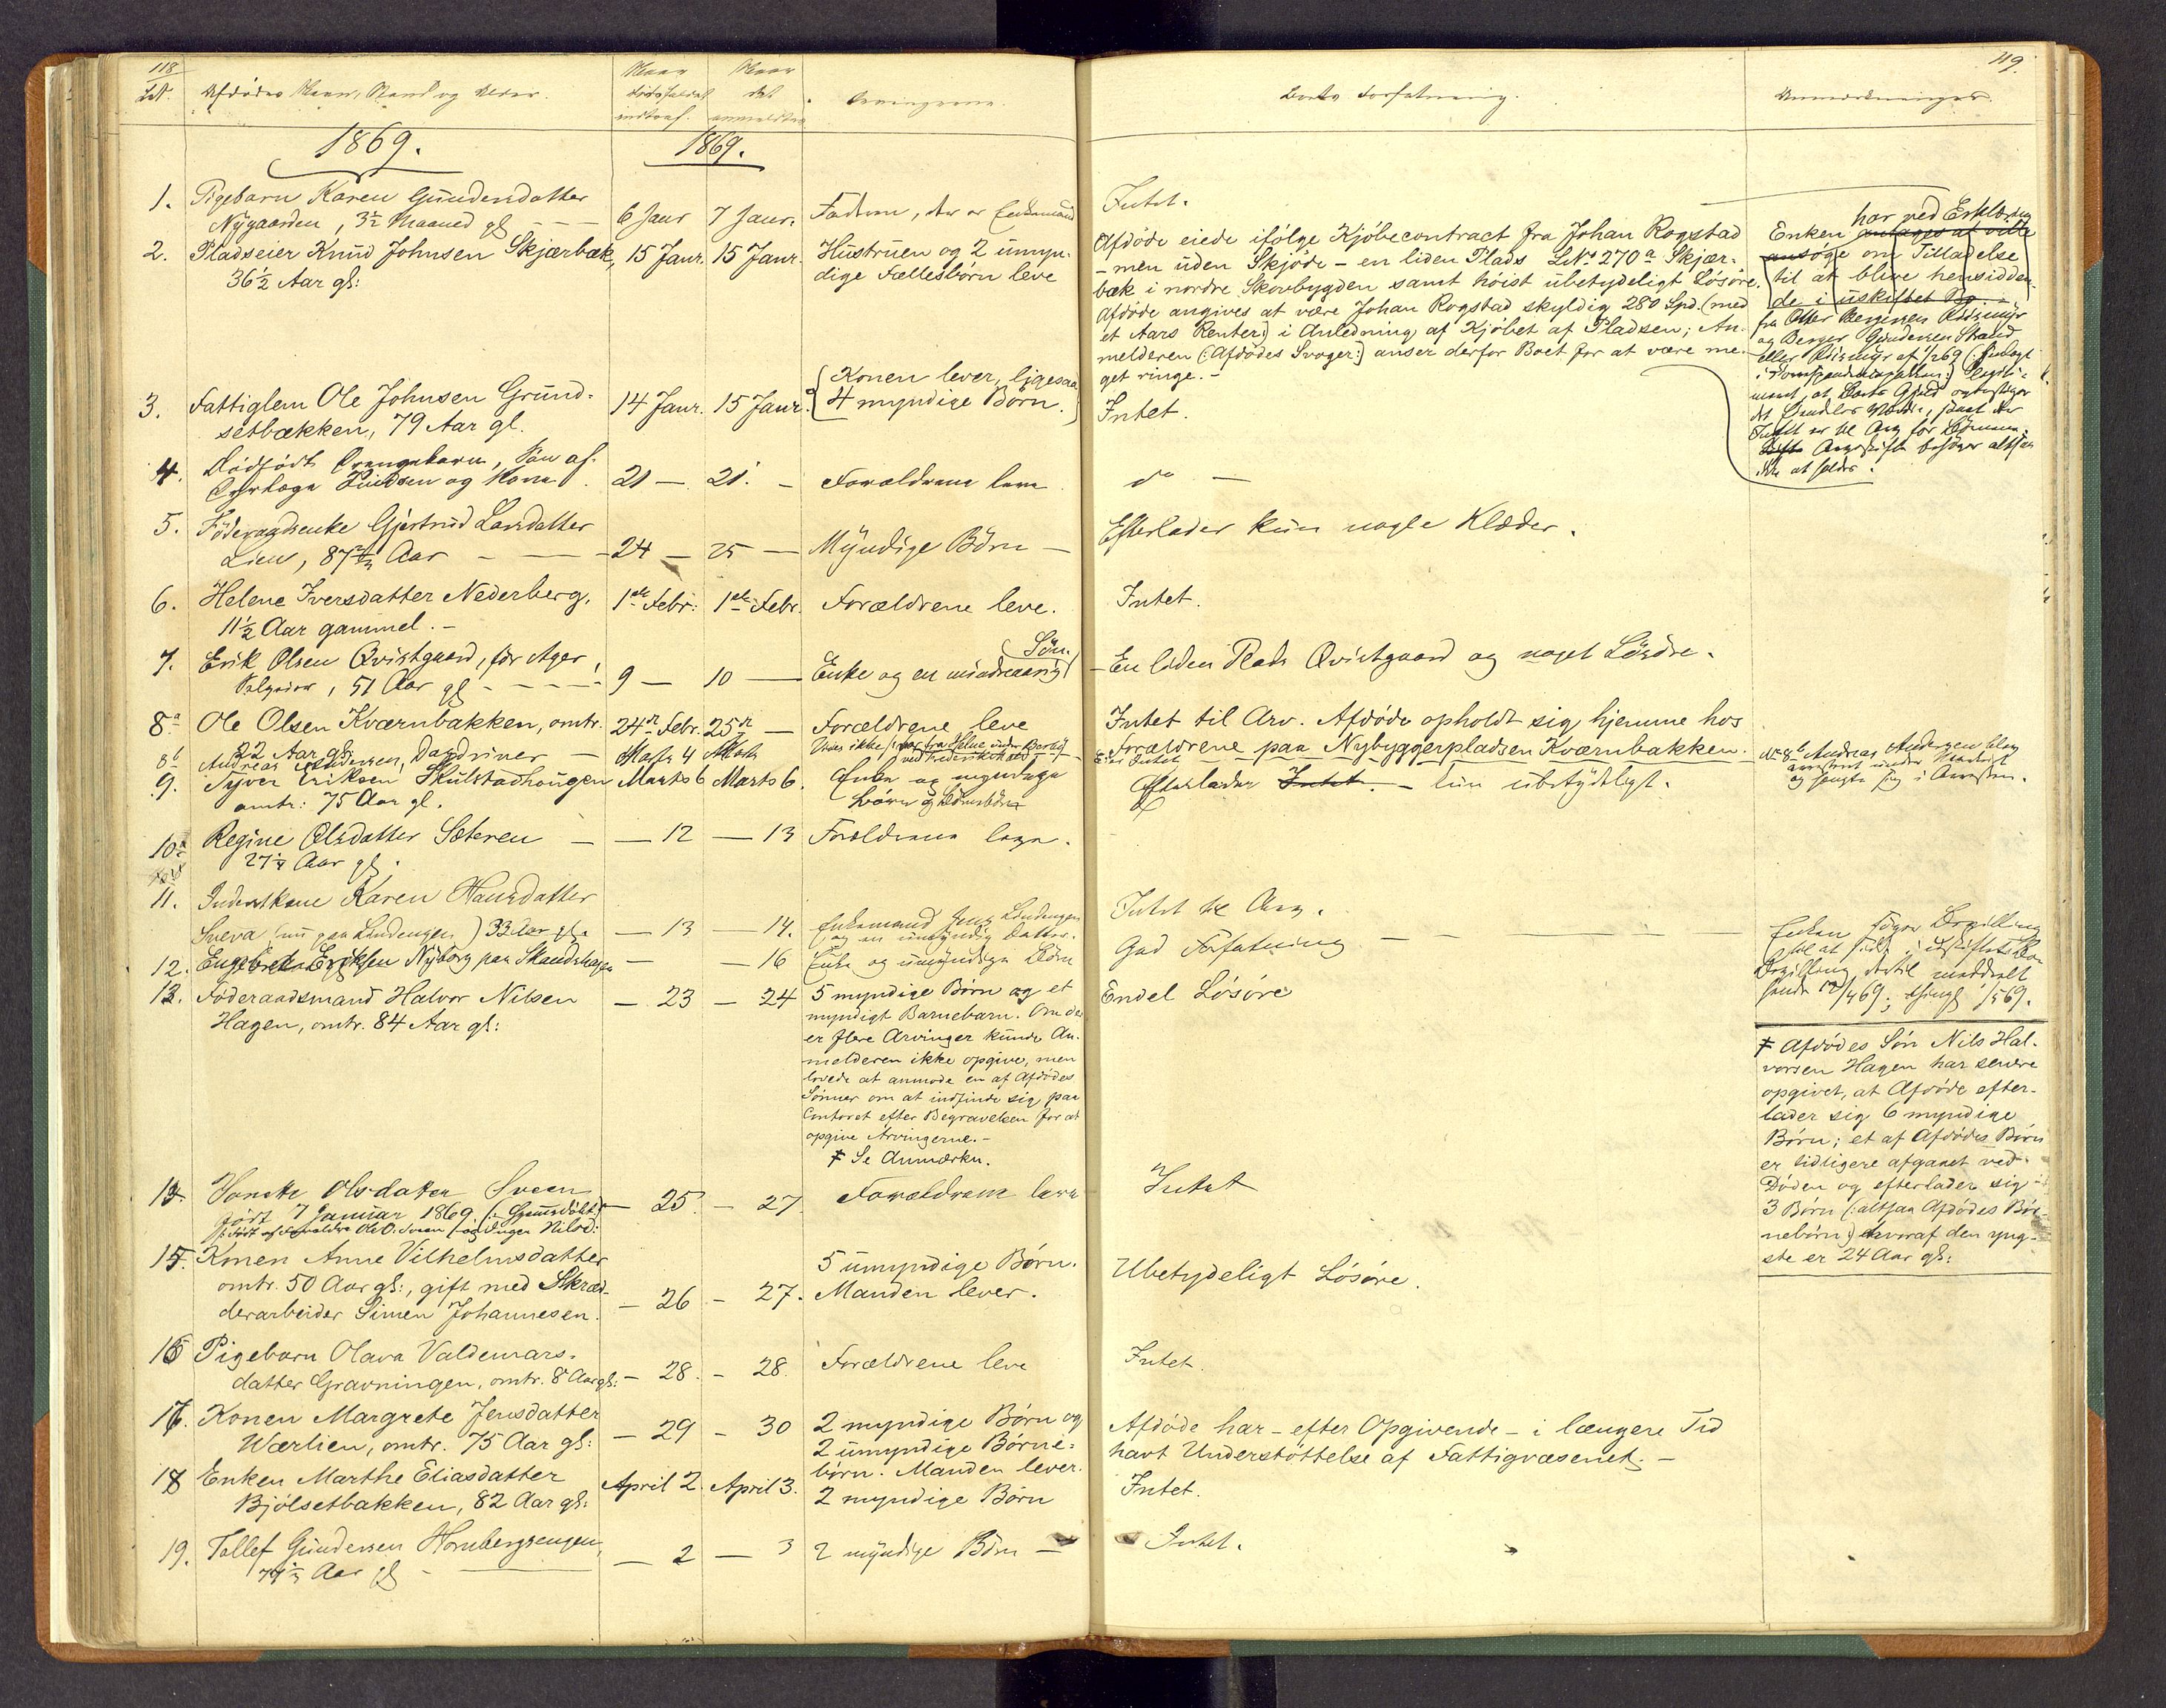 118
119.
Afdødes Navn, Stand og Alder.
Naar Dødsfaldet indtraf.
Naar det anmeldtes
Arvingerne.
Boets Forfatning.
Anmærkninger.
1869.
1869.
1. Pigebarn Karen Gundersdatter
Nygaarden, 3½ Maaned gl
6 Janr 7 Janr.
Faderen, der er Enkemand
Intet.
2. Pladseier Knud Johnsen Skjærbæk,
36½ Aar gl:
15 Janr. 15 Janr.
Hustruen og 2 umyn-
dige Fællesbørn leve
Afdøde eiede ifølge Kjøbecontract fra Johan Rogstad
- men uden Skjøde - en liden Plads LNo 270a Skjær-
bæk i nordre Skovbygden samt høist ubetydeligt Løsøre.
Afdøde angives at være Johan Rogstad skyldig 280 Spd. (med
et Aars Renter) i Anledning af Kjøbet af Pladsen; An-
melderen (: Afdødes Svoger:) anser derfor Boet for at være me-
get ringe. -
har ved Erklæring
Enken antages at ville
ansøge om Tilladelse
til at blive hensidden-
de i uskiftet Bo. -
3. Fattiglem Ole Johnsen Grund-
setbækken, 79 Aar gl.
14 Janr. 15 Janr.
Konen lever, ligesaa
4 myndige Børn.
Intet.
4. Dødfødt Drengebarn, Søn af
21 - 21. -
Forældrene leve
do -
5. Føderaadsenke Gjertrud Larsdatter
Lien, 87½ Aar
24 - 25 -
Myndige Børn -
Efterlader kun nogle Klæder.
6. Helene Iversdatter Nederberg,
11½ Aar gammel. -
1ste Febr: 1ste Febr.
Forældrene leve.
Intet.
7. Erik Olsen Qvistgaard, før Ager
51 Aar gl
9 - 10 -
Søn.
Enke og en mindreaarig
En liden Plads Qvistgaard og noget Løsøre.
8a Ole Olsen Kværnbakken, omtr.
22 Aar gl:
24de Febr. 25de -
Forældrene leve
Intet til Arv. Afdøde opholdt sig hjemme hos
Forældrene paa Nybyggerpladsen Kværnbakken.
8b Andreas Andersen, Dagdriver
Marts 4 Marts
Eier Intet
No 8b Andreas Andersen blev
arresteret under
og hængte sig i Arresten.
9. Syver Eriksen Skulstadhaugen
omtr: 75 Aar gl.
Marts 6 Marts 6.
Enke og myndige
Børn og Børnebørn
Efterlader Intet. - kun ubetydeligt.
10. Regine Olsdatter Sæteren
27¼ Aar gl.
- 12 - 13
Forældrene leve.
11. Inderstkone Karen Hansdatter
Sneva (nu paa Lindengen) 33 Aar gl.
- 13 - 14.
Enkemand Jens Lindengen
og en umyndig Datter.
Intet til Arv.
12. Engebret Eriksen Nyborg paa Strandshagen
- - 16
Enke og umyndige Børn
God Forfatning
Enken søger Bevilling
til at sidde i uskiftet Bo
Bevilling dertil meddelt
hende 12/4 69; thingl. 1/5 69.
13. Føderaadsmand Halvor Nilsen
Hagen, omtr. 84 Aar gl:
- 23 - 24
5 myndige Børn og et
myndigt Barnebarn. Om der
er flere Arvinger kunde An-
melderen ikke opgive, men
lovede at anmode en af Afdødes
Sønner om at indfinde sig paa
Contoret efter Begravelsen for at
opgive Arvingerne. -
‡ Se Anmærkn.
Endel Løsøre
‡ Afdødes Søn Nils Hal-
vorsen Hagen har senere
opgivet, at Afdøde efter-
lader sig 6 myndige
Børn; et af Afdødes Børn
er tidligere afgaaet ved
Døden og efterlader sig
3 Børn (: altsaa Afdødes Bør-
nebørn) hvoraf den yng-
ste er 24 Aar gl:
14. Olsdatter Sveen
født 7 Januar 1869
- 25 - 27.
Forældrene leve
Intet
15. Konen Anne Vilhelmsdatter
omtr. 50 Aar gl:, gift med Skræd-
derarbeider Simen Johannesen.
- 26 - 27.
5 umyndige Børn.
Manden lever.
Ubetydeligt Løsøre.
16 Pigebarn Olava Valdemars-
datter Gravningen, omtr. 8 Aar gl:
- 28. - 28.
Forældrene leve
Intet.
17. Konen Margrete Jensdatter
Wærlien, omtr. 75 Aar gl:
- 29 - 30
2 myndige Børn og
2 umyndige Børne-
børn. Manden lever.
Afdøde har - efter Opgivende - i længere Tid
havt Understøttelse af Fattigvæsenet. -
18 Enken Marthe Eliasdatter
Bjølsetbakken, 82 Aar gl:
April 2. April 3.
2 myndige Børn
Intet.
19. Tollef Gundersen Hornbergsengen,
Aar gl
- 2 - 3
2 myndige Børn -
Intet.